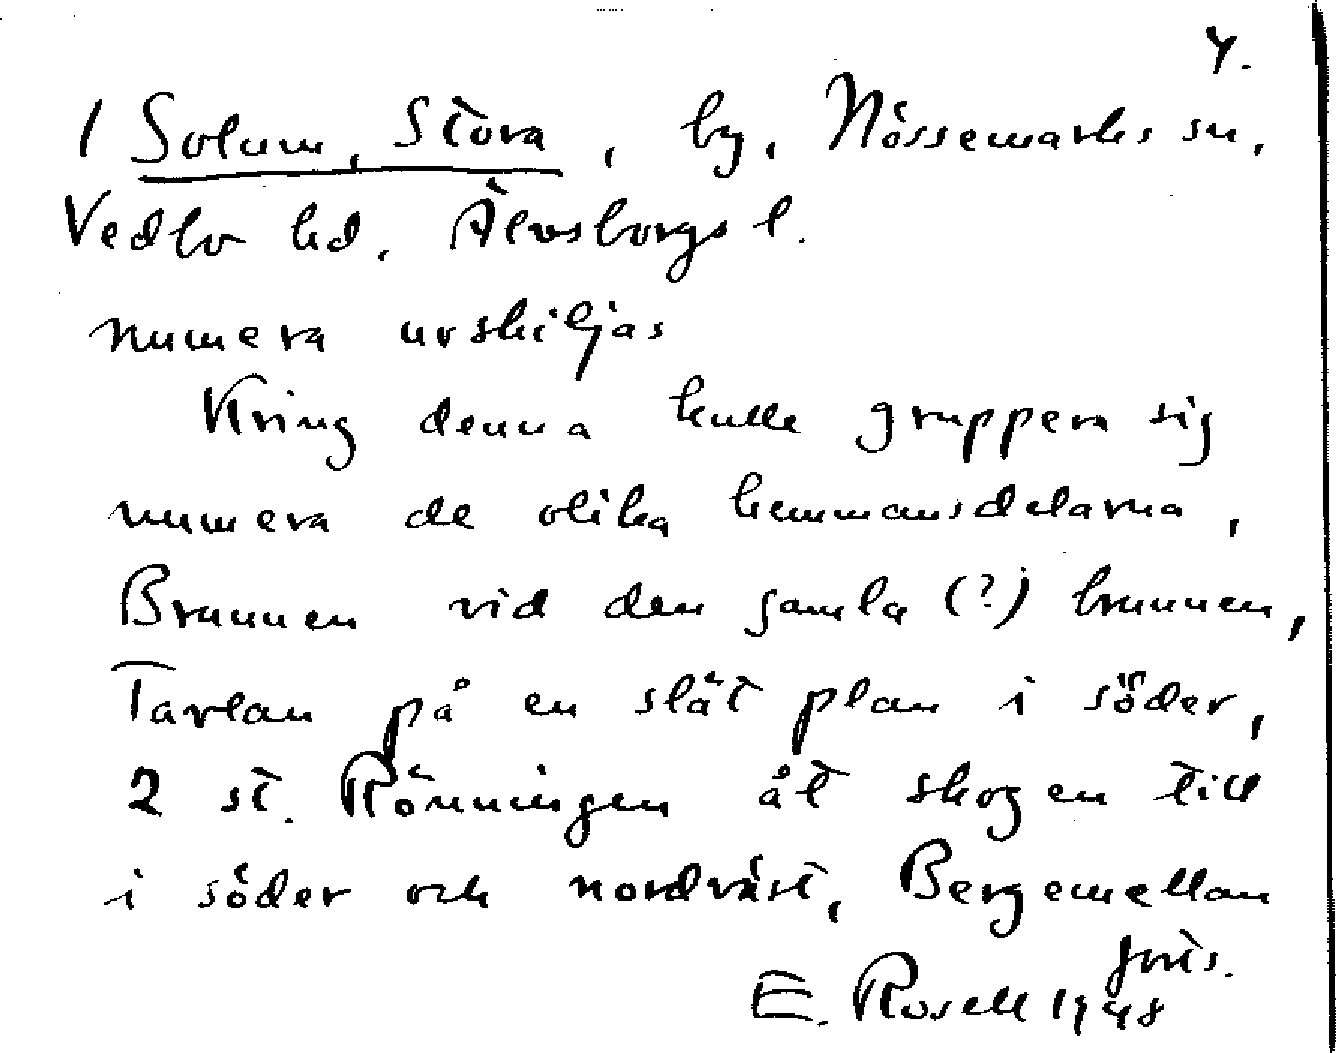 4.
/ Solum, Stora, by, Nössemarks sn,
Vedbo hd, Älvsborgs l.
numera urskiljas
Kring denna kulle gruppera sig
numera de olika hemmansdelarna,
Brunnen vid den gamla (?) brunnen,
Tavlan på en slät plan i söder,
2 st. Rönningen åt skogen till
i söder och nordväst, Bergemellan
forts.
E. Rosell 1948